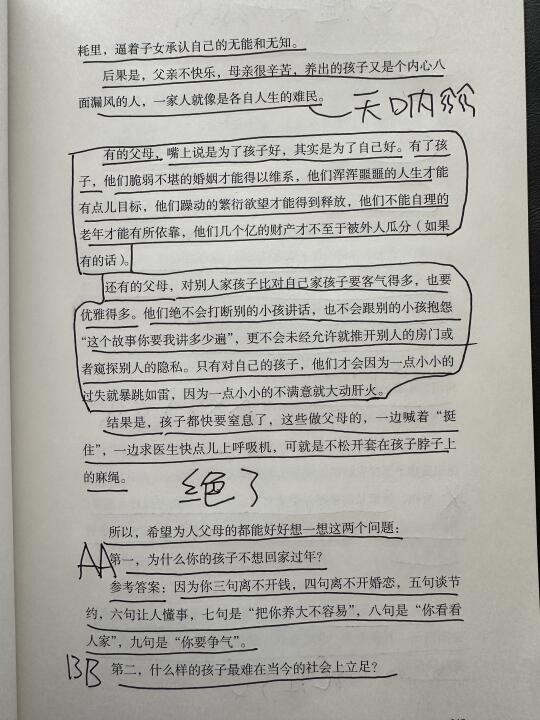 耗里，逼着子女承认自己的无能和无知。
后果是，父亲不快乐，母亲很辛苦，养出的孩子又是个内心八
面漏风的人，一家人就像是各自人生的难民。
天呐
有的父母，嘴上说是为了孩子好，其实是为了自己好。有了孩
子，他们脆弱不堪的婚姻才能得以维系，他们浑浑噩噩的人生才能
有点儿目标，他们躁动的繁衍欲望才能得到释放，他们不能自理的
老年才能有所依靠，他们几个亿的财产才不至于被外人瓜分（如果
有的话）。
还有的父母，对别人家孩子比对自己家孩子要客气得多，也要
优雅得多。他们绝不会打断别的小孩讲话，也不会跟别的小孩抱怨
“这个故事你要我讲多少遍”，更不会未经允许就推开别人的房门或
者窥探别人的隐私。只有对自己的孩子，他们才会因为一点小小的
过失就暴跳如雷，因为一点小小的不满意就大动肝火。
结果是，孩子都快要窒息了，这些做父母的，一边喊着“挺
住”，一边求医生快点儿上呼吸机，可就是不松开套在孩子脖子上
的麻绳。
绝了
所以，希望为人父母的都能好好想一想这两个问题：
AA
第一，为什么你的孩子不想回家过年？
参考答案：因为你三句离不开钱，四句离不开婚恋，五句谈节
约，六句让人懂事，七句是“把你养大不容易”，八句是“你看看
人家”，九句是“你要争气”。
BB
第二，什么样的孩子最难在当今的社会上立足？